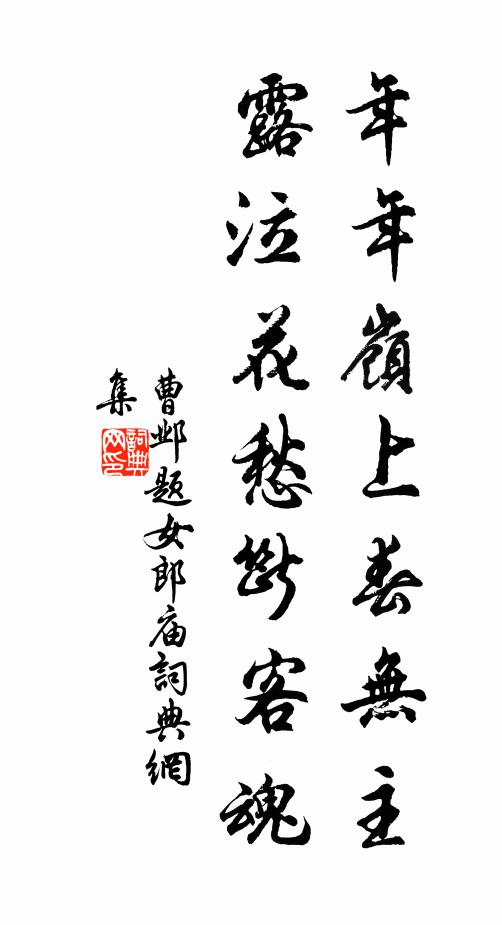 年年嶺上春無主
露泣花愁斷客魂
曹邺題女郎庙詞典網
集
詞典网印